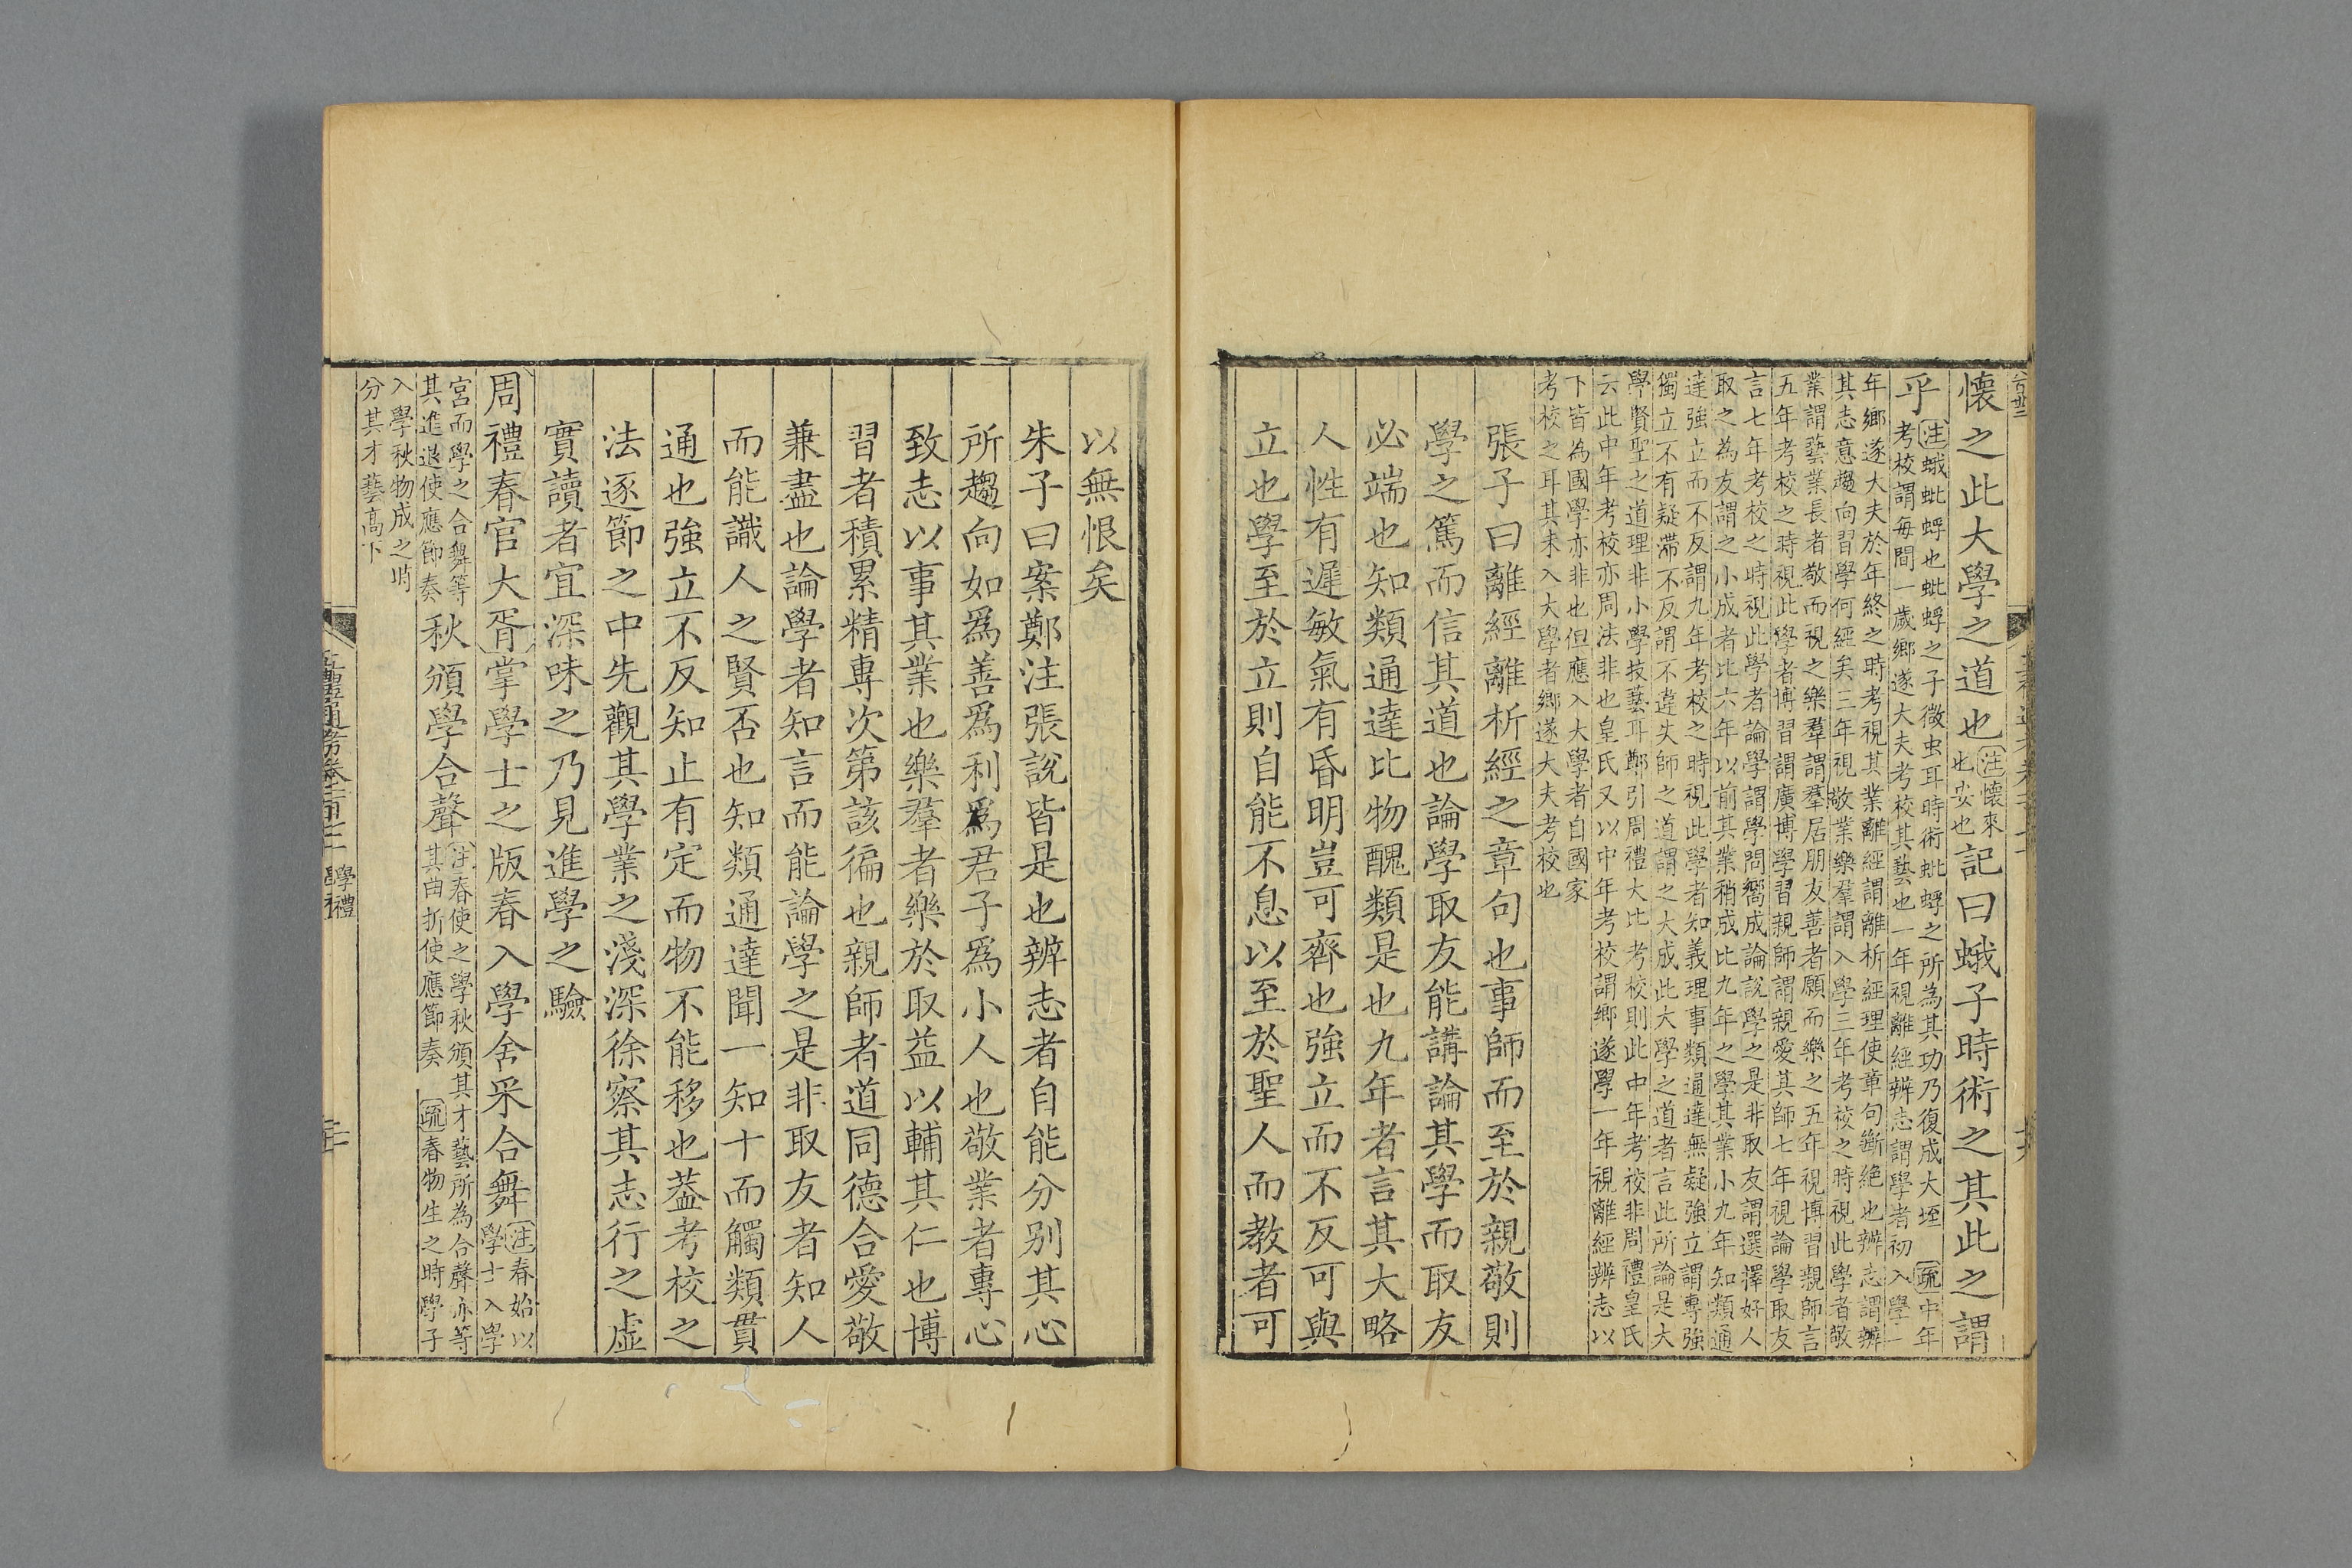 懷之此大學之道也注懷來
也安也記曰蛾子時術之其此之謂
乎注蛾蚍蜉也蚍蜉之子微虫耳時術蚍蜉之所為其功乃復成大垤疏中年
考校謂每間一歲鄉遂大夫考校其藝也一年視離經辨志謂學者初入學一
年鄉遂大夫於年終之時考視其業離經謂離析經理使章句斷絕也辨志謂辨
其志意趨向習學何經矣三年視敬業樂羣謂入學三年考校之時視此學者敬
業謂藝業長者敬而視之樂羣謂羣居朋友善者願而樂之五年視博習親師言
五年考校之時視此學者博習謂廣博學習親師謂親愛其師七年視論學取友
言七年考校之時視此學者論學謂學問嚮成論說學之是非取友謂選擇好人
取之為友謂之小成者比六年以前其業稍成比九年之學其業小九年知類通
達強立而不反謂九年考校之時視此學者知義理事類通達無疑強立謂專強
獨立不有疑滯不反謂不違失師之道謂之大成此大學之道者言此所論是大
學賢聖之道理非小學技藝耳鄭引周禮大比考校則此中年考校非周禮皇氏
云此中年考校亦周法非也皇氏又以中年考校謂鄉遂學一年視離經辨志以
下皆為國學亦非也但應入大學者自國家
考校之耳其未入大學者鄉遂大夫考校也
張子曰離經離析經之章句也事師而至於親敬則
學之篤而信其道也論學取友能講論其學而取友
必端也知類通達比物醜類是也九年者言其大略
人性有遲敏氣有昏明豈可齊也強立而不反可與
立也學至於立則自能不息以至於聖人而教者可
以無恨矣
朱子曰案鄭注張說皆是也辨志者自能分别其心
所趨向如爲善爲利爲君子爲小人也敬業者專心
致志以事其業也樂羣者樂於取益以輔其仁也博
習者積累精專次第該徧也親師者道同德合愛敬
兼盡也論學者知言而能論學之是非取友者知人
而能識人之賢否也知類通達聞一知十而觸類貫
通也強立不反知止有定而物不能移也葢考校之
法逐節之中先觀其學業之淺深徐察其志行之虛
實讀者宜深味之乃見進學之驗
周禮春官大胥掌學士之版春入學舍采合舞注春始以
學士入學
宮而學之合舞等
其進退使應節奏秋頒學合聲注春使之學秋頒其才藝所為合聲亦等
其曲折使應節奏疏春物生之時學子
入學秋物成之時
分其才藝高下
學禮